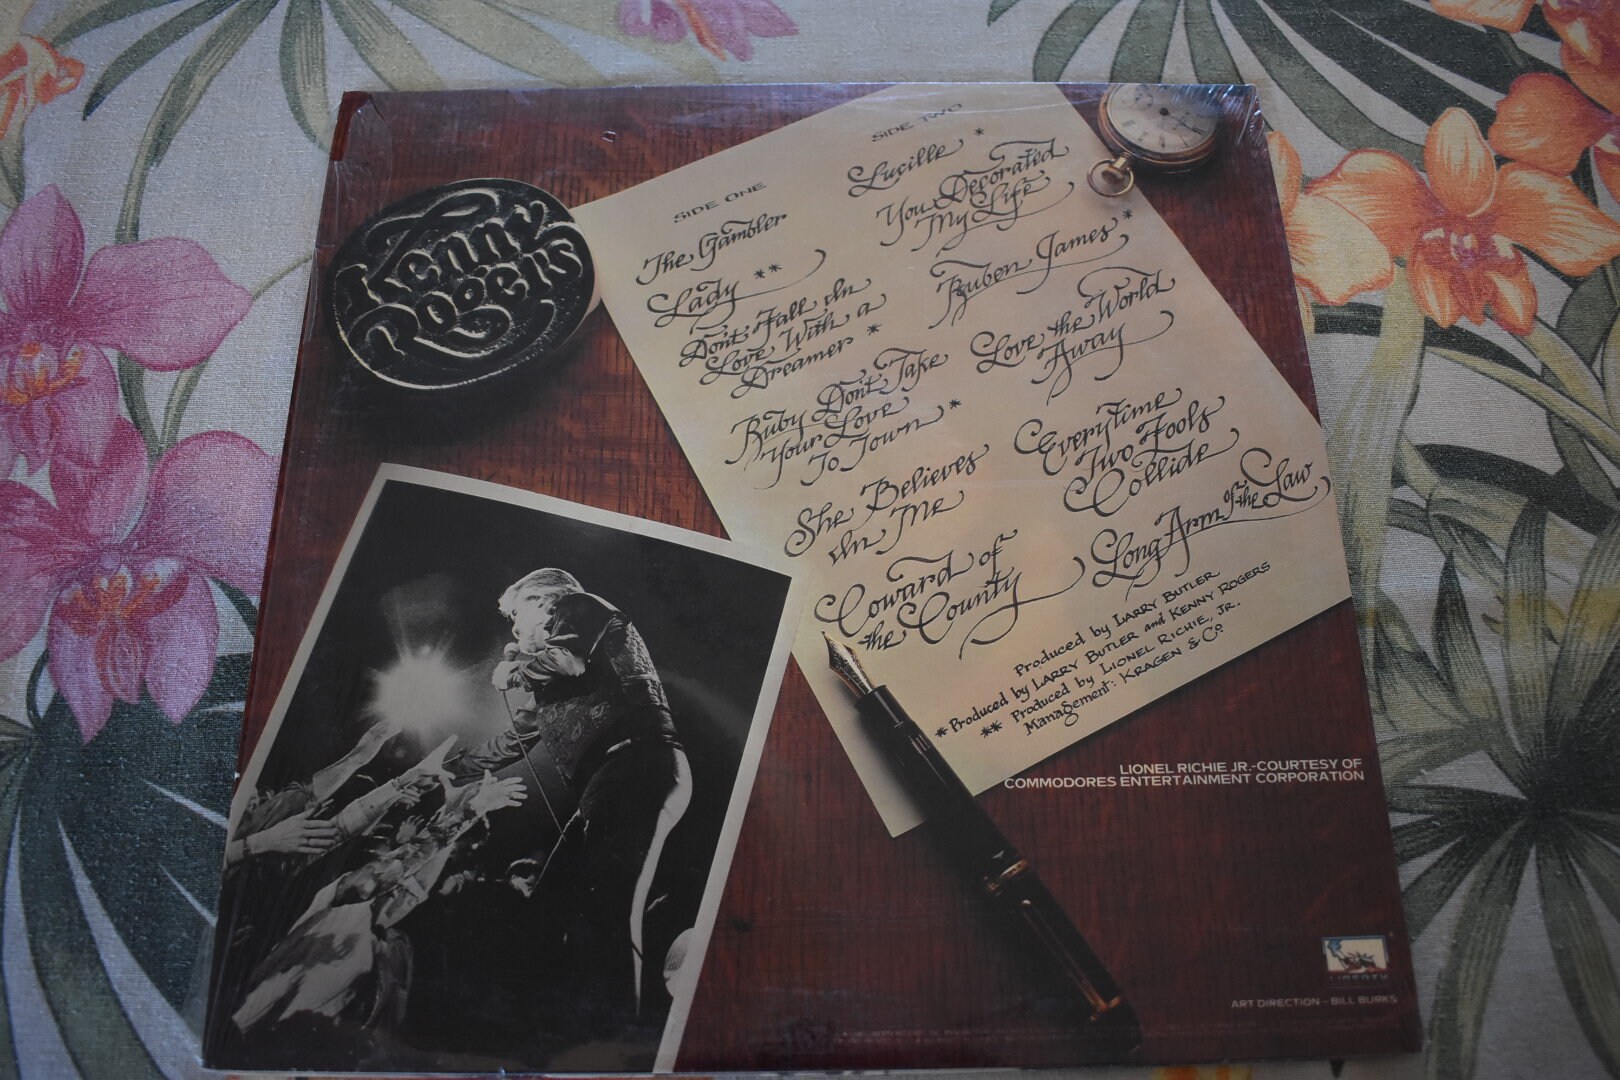 Kenny
Rogers
SIDE ONE
The Gambler
Lady **
Don't Fall In
Love With a
Dreamer *
Ruby Don't Take
Your Love
To Town *
She Believes
In Me
Coward of
the County
SIDE TWO
Lucille *
You Decorated
My Life
Ruben James *
Love the World
Away
Everytime
Two Fools
Collide
Long Arm of the Law
Produced by LARRY BUTLER
*Produced by LARRY BUTLER and KENNY ROGERS
** Produced by LIONEL RICHIE, JR.
Management: KRAGEN & CO
LIONEL RICHIE JR.-COURTESY OF
COMMODORES ENTERTAINMENT CORPORATION
LIBERTY
ART DIRECTION - BILL BURKS